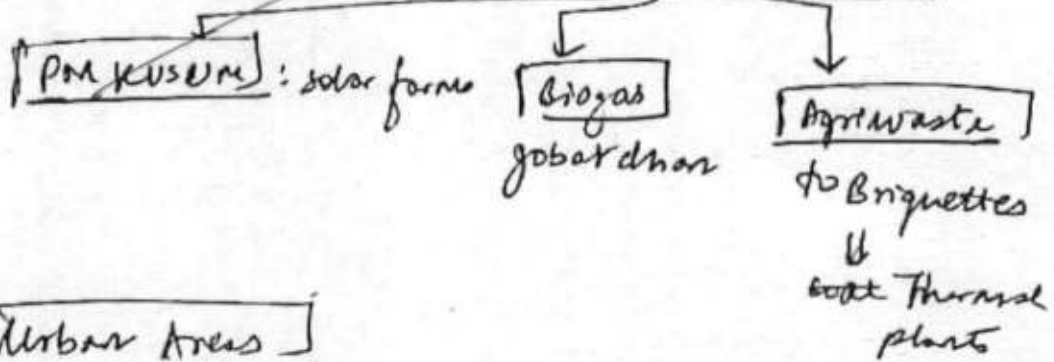 PM KUSUM : solar farms
Biogas
gobardhan
Agriwaste
to Briquettes
Thermal
plants
Urban Areas